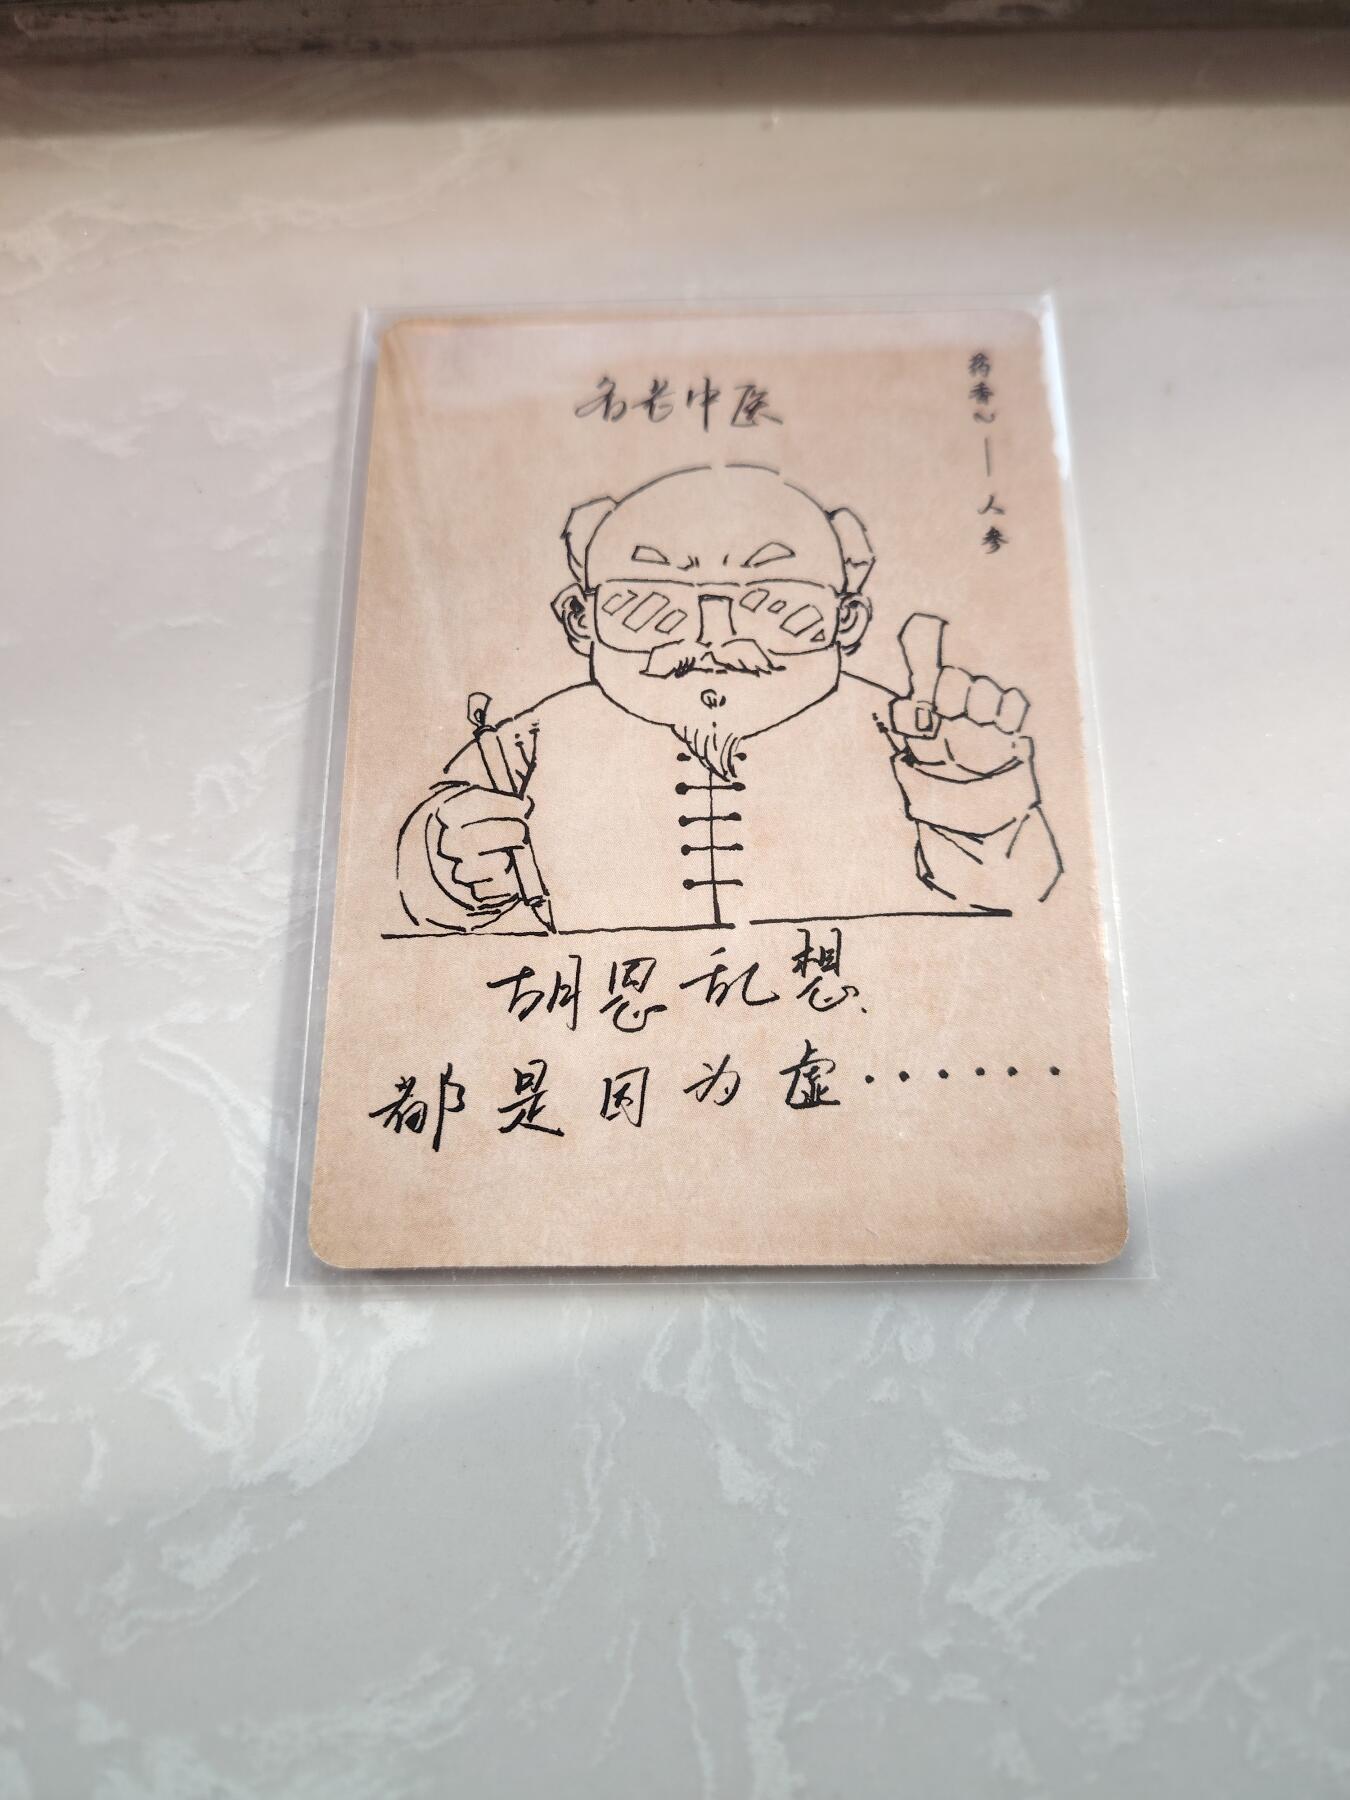 名老中医
药香~——人参
胡思乱想
都是因为虚······